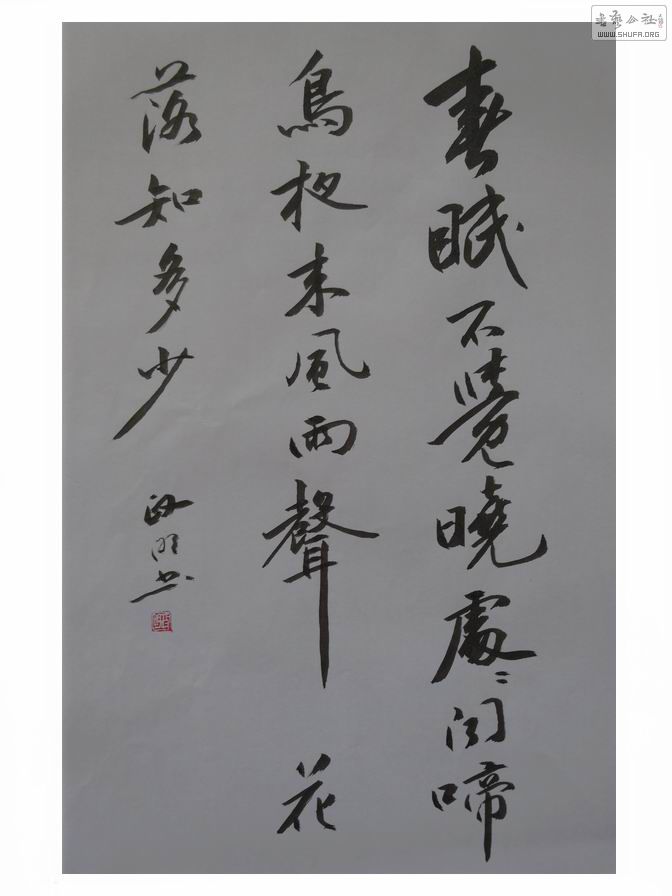 春眠不覺曉處〻聞啼
鳥夜来風雨聲花
落知多少
书
书藝公社
WWW.SHUFA.ORG